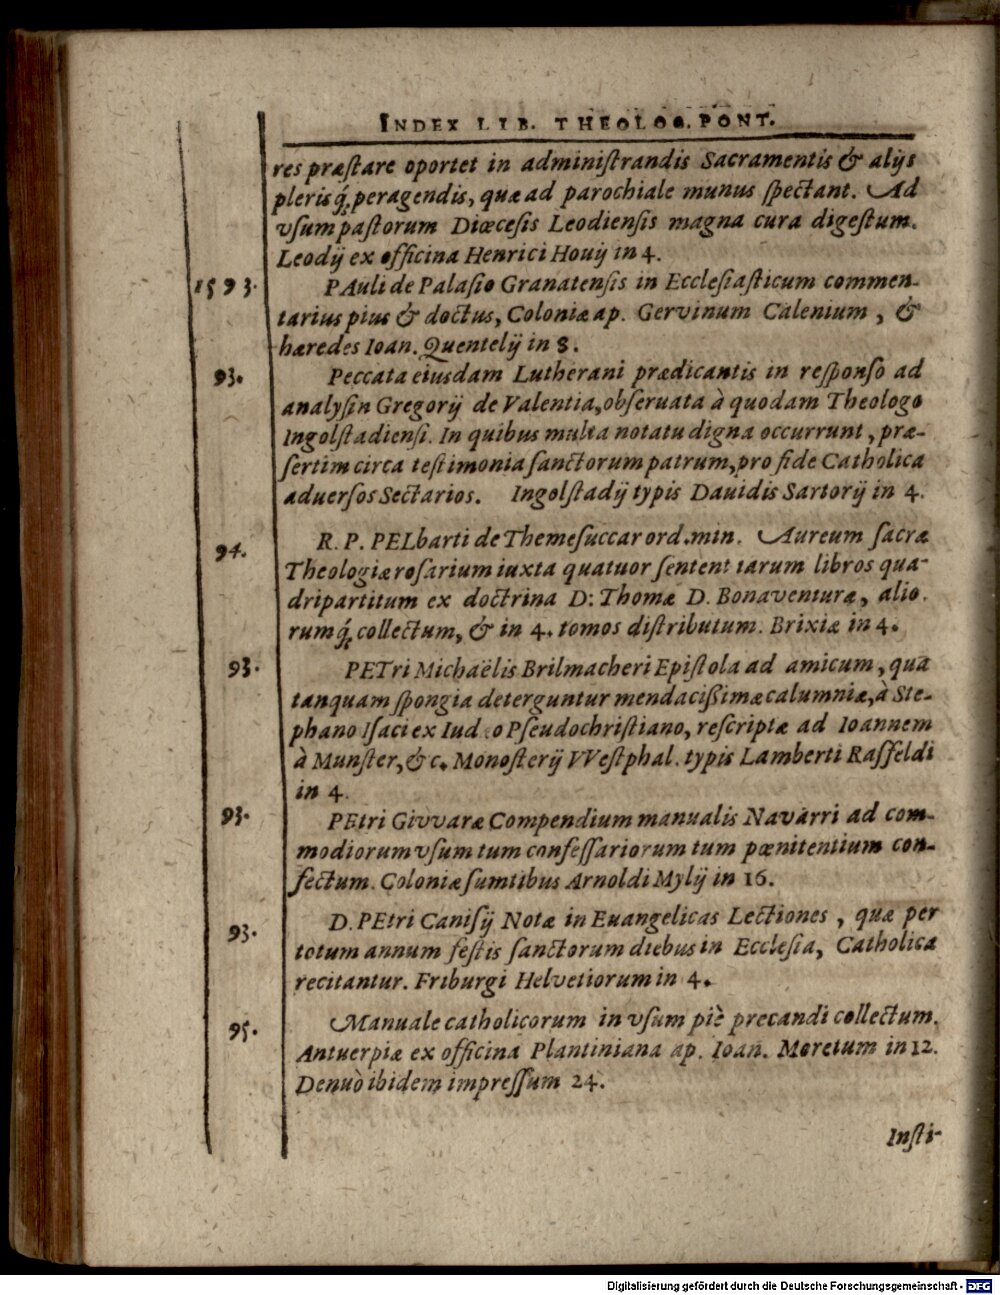 INDEX LIB. THEOLOG. PONT.
res præſtare oportet in adminiſtrandis Sacramentis & alijs
plerisq́; peragendis, quæ ad parochiale munus ſpectant. Ad
vſum paſtorum Diœceſis Leodienſis magna cura digeſtum.
Leodij ex officina Henrici Houij in 4.
1593. PAuli de Palaſio Granatenſis in Eccleſiaſticum commen-
tarius pius & doctus, Coloniæ ap. Gervinum Calenium, &
hæredes Ioan. Quentelij in 8.
93. Peccata eiusdam Lutherani prædicantis in reſponſo ad
analyſin Gregorij de Valentia, obſeruata à quodam Theologo
Ingolſtadienſi. In quibus multa notatu digna occurrunt, præ-
ſertim circa teſtimonia ſanctorum patrum, pro fide Catholica
aduerſos Sectarios. Ingolſtadij typis Dauidis Sartorij in 4.
94. R. P. PELbarti de Themeſuccar ord. min. Aureum ſacræ
Theologiæ roſarium iuxta quatuor ſentent iarum libros qua-
dripartitum ex doctrina D: Thomæ D. Bonaventuræ, alio.
rumq́; collectum, & in 4. tomos diſtributum. Brixiæ in 4.
93. PETri Michaëlis Brilmacheri Epiſtola ad amicum, qua
tanquam ſpongia deterguntur mendacißimæ calumniæ, à Ste-
phano Iſaci ex Iud o Pſeudochriſtiano, reſcriptæ ad Ioannem
à Munſter, & c. Monoſterij VVeſtphal. typis Lamberti Raſſeldi
in 4.
93. PEtri Givvaræ Compendium manualis Navarri ad com-
modiorum vſum tum confeſſariorum tum pœnitentium con-
fectum. Coloniæ ſumtibus Arnoldi Mylij in 16.
93. D. PEtri Caniſij Notæ in Euangelicas Lectiones, quæ per
totum annum feſtis ſanctorum diebus in Eccleſia, Catholica
recitantur. Friburgi Helvetiorum in 4.
95. Manuale catholicorum in vſum piè precandi collectum.
Antuerpiæ ex officina Plantiniana ap. Ioan. Moretum in 12.
Denuò ibidem impreſſum 24.
Inſti-
Digitalisierung gefördert durch die Deutsche Forschungsgemeinschaft - DFG